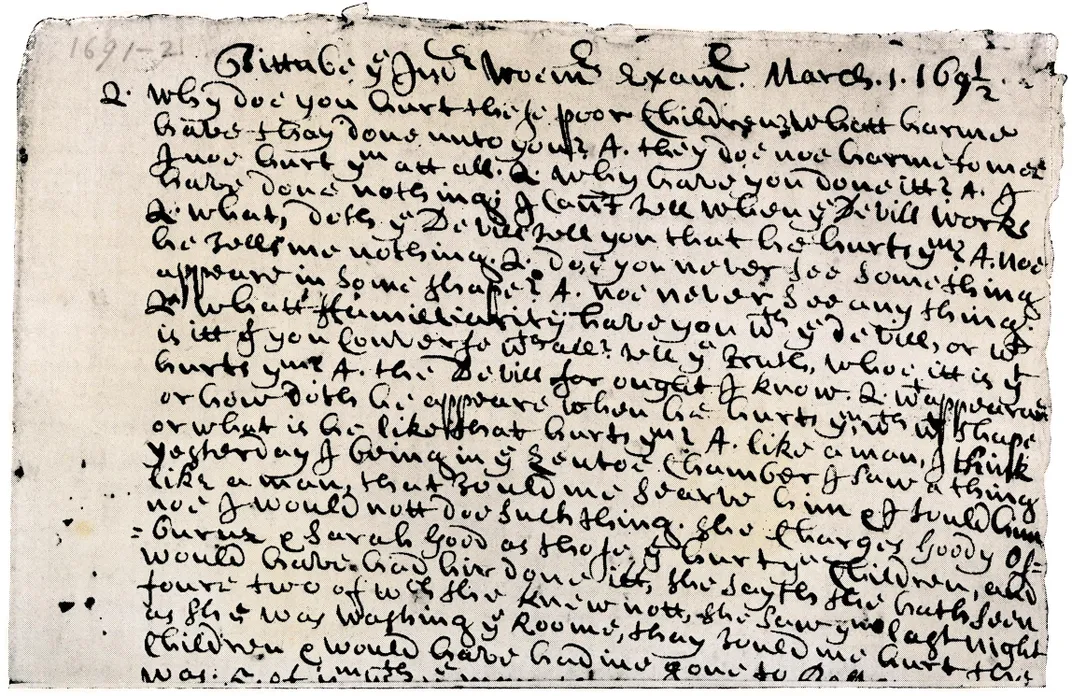 1691-2
Tittube yͤ Indⁿ Woemⁿ Examⁿ. March. 1. 169½
Q. why doe you hurt these poor Children? whatt harme
have thay done unto you? A. they doe noe harme to mee
I noe hurt yᵐ att all. Q. why have you done itt? A. I
have done nothing; I Can't tell when yͤ Devill works
Q. what, doth yͤ Devill tell you that he hurts yᵐ? A. noe
he tells me nothing. Q. doe you never see Something
appeare in Some shape? A. noe never See any thing.
Q. whatt familiarity have you wᵗʰ yͤ devill, or wᵗ
is itt if you Converse wᵗʰall? tell yͤ truth, whoe itt is yᵗ
hurts yᵐ? A. the Devill for ought I know. Q. wᵗ appearan
or how doth he appeare when he hurts yᵐ, wᵗʰ wᵗ shape
or what is he like that hurts yᵐ? A. like a man, I think
yesterday I being in yͤ Lentoe Chamber I saw a thing
like a man, that tould me Searve him & I tould him
noe I would nott doe Such thing. she Charges Goody Os=
=burne & Sarah Good as those yᵗ hurt yͤ Children, and
would have had hir done itt, she sayth she hath Seen
foure two of wᶜʰ she knew nott, she saw yᵐ last night
as she was washing yͤ Roome, thay tould me hurt the
Children & would have had me gone to